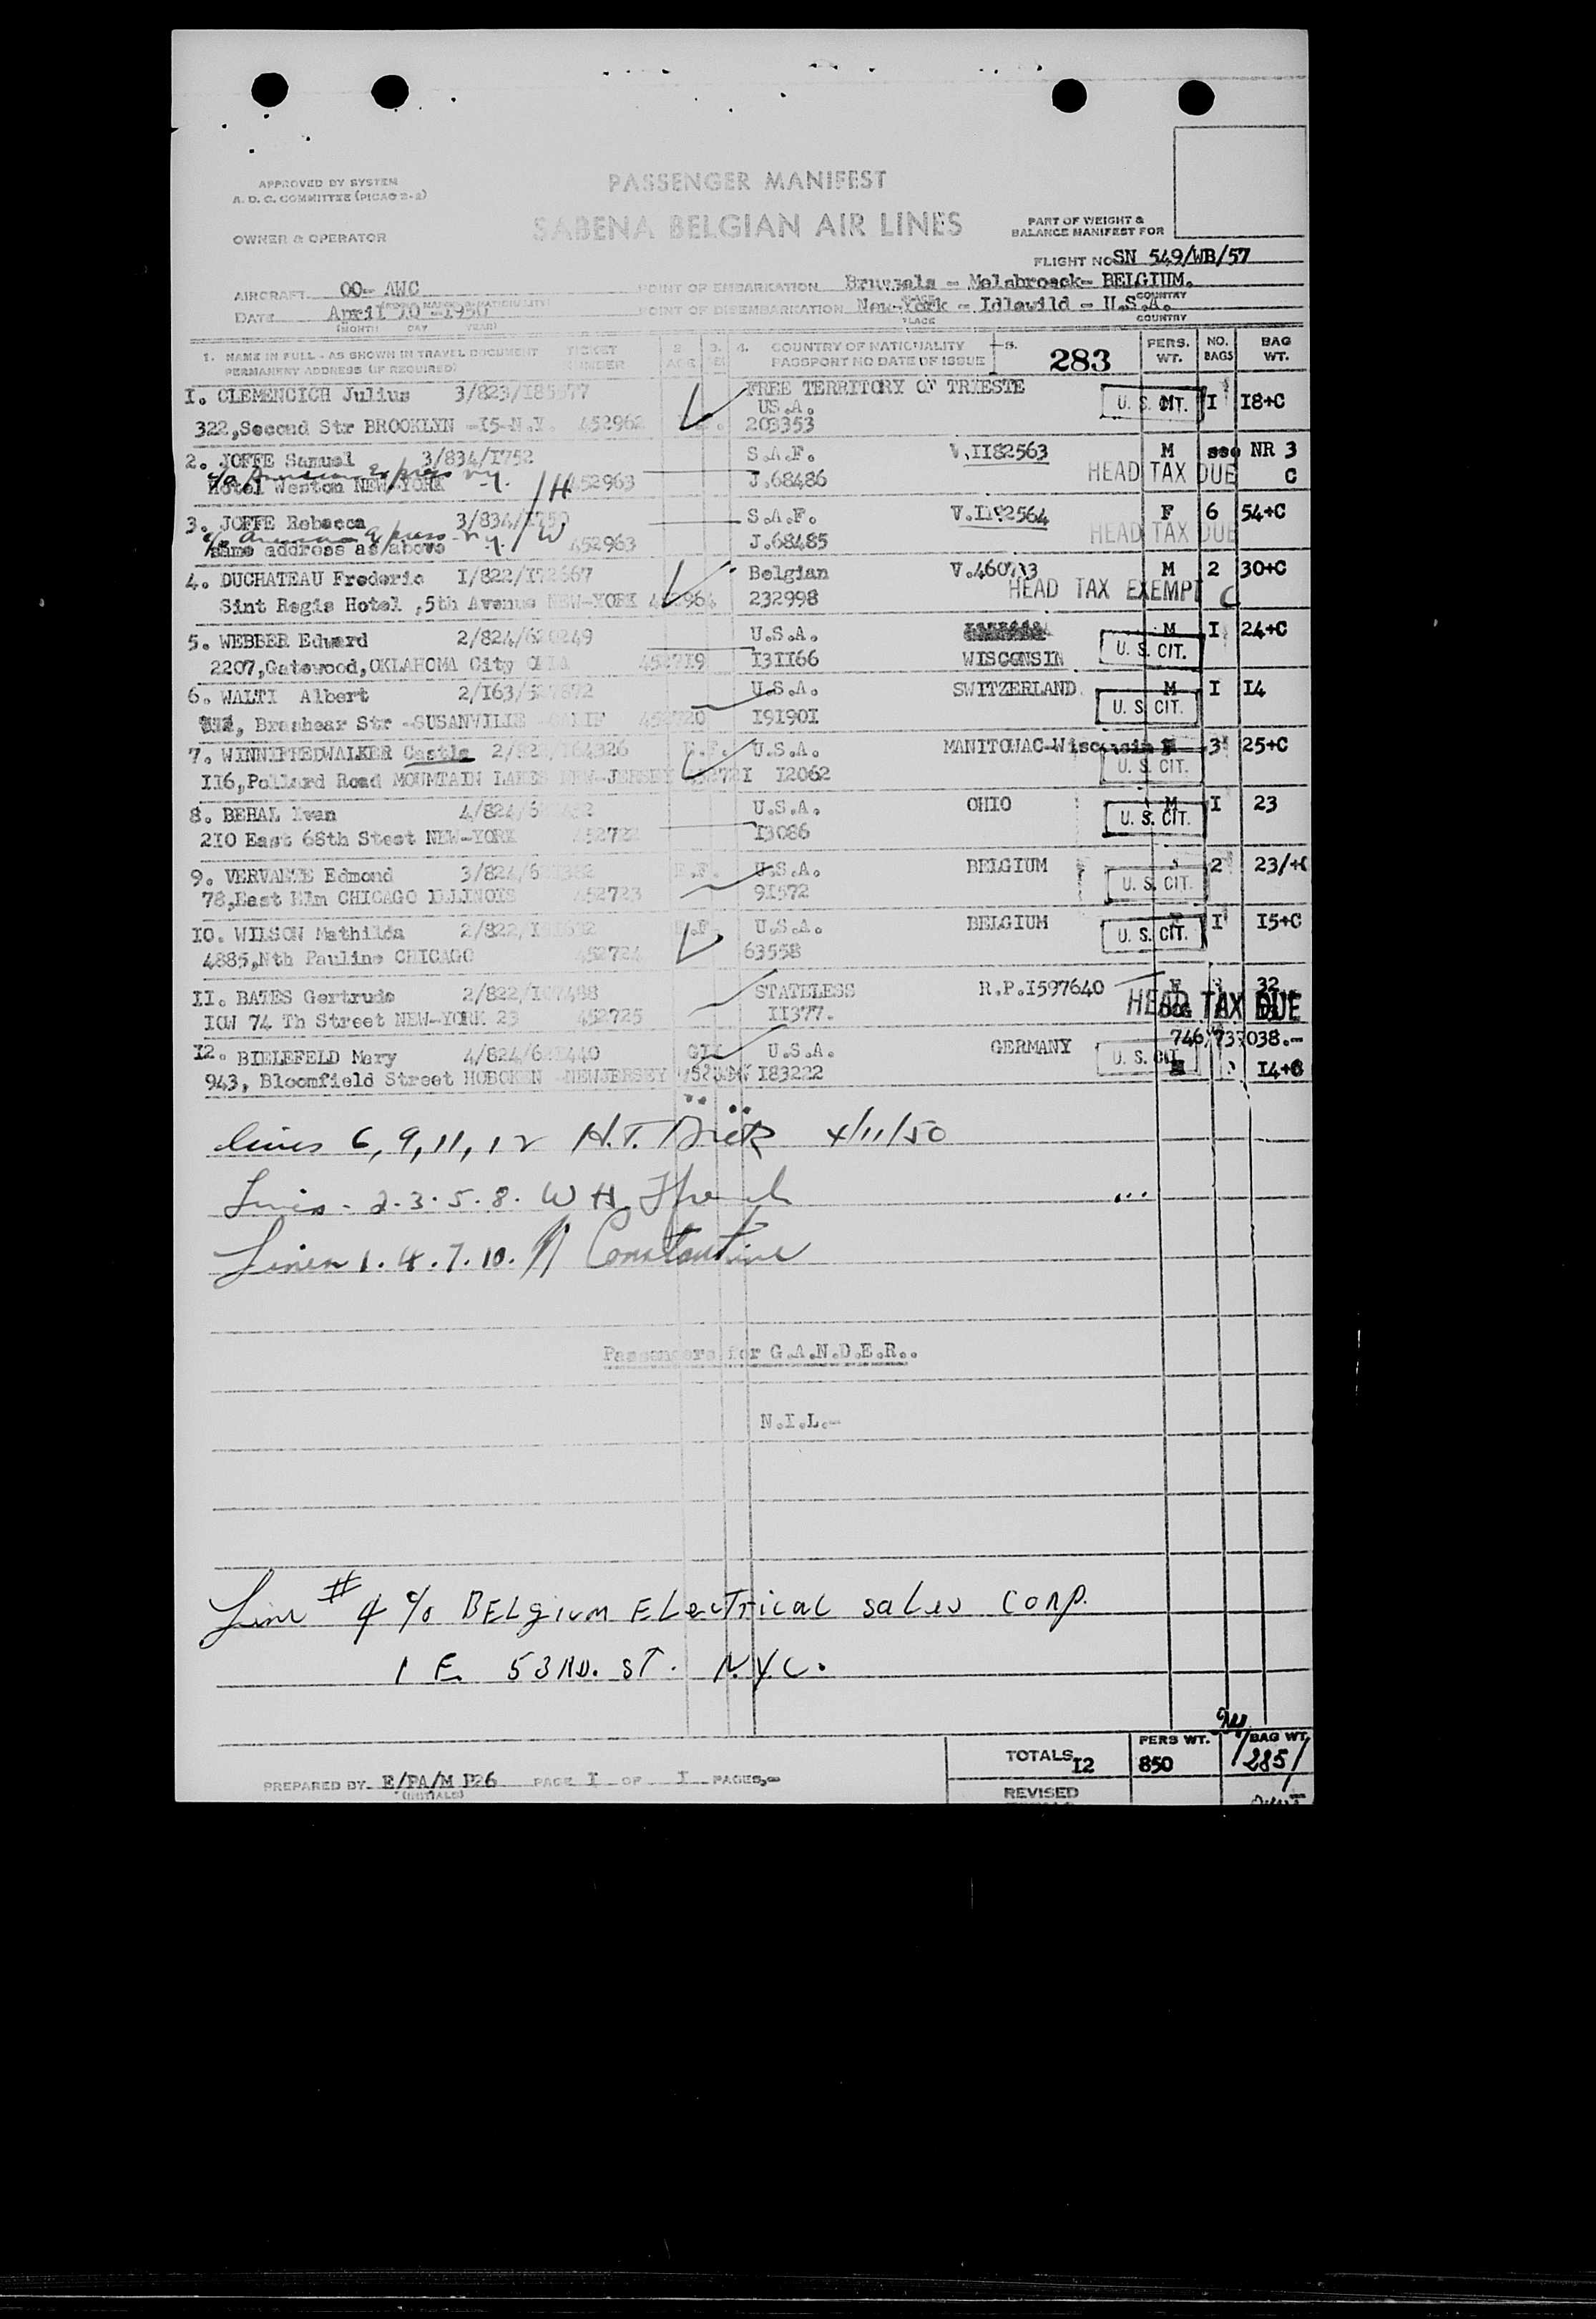 APPROVED BY SYSTEM
A. D. C. COMMITTEE (PICAO 2-2)
PASSENGER MANIFEST
SABENA BELGIAN AIR LINES
OWNER & OPERATOR
PART OF WEIGHT &
BALANCE MANIFEST FOR
FLIGHT NO SN 549/WB/57
AIRCRAFT OO- AWC
POINT OF EMBARKATION Brussels - Melsbroeck- BELGIUM.
COUNTRY
DATE April 10 -1950
(MONTH DAY YEAR)
POINT OF DISEMBARKATION New-York - Idlewild - U.S.A.
PLACE COUNTRY
1. NAME IN FULL - AS SHOWN IN TRAVEL DOCUMENT TICKET 2. 3. 4. COUNTRY OF NATIONALITY 5. 283 PERS. NO. BAG
PERMANENT ADDRESS (IF REQUIRED) NUMBER AGE SEX PASSPORT NO DATE OF ISSUE WT. BAGS WT.
I. CLEMENCICH Julius FREE TERRITORY OF TRIESTE
US.A. U. S. CIT. I I8+C
322,Second Str BROOKLYN -I5-N.Y. 452962 203353
2. JOFFE Samuel 3/834/I752 S.A.F. V.II82563 M see NR 3
c/o American Express N.Y.
Hotel Weston NEW-YORK /H 452963 J.68486 HEAD TAX DUE C
3. JOFFE Rebecca S.A.F. V.II82564 F 6 54+C
c/o American Express N.Y. /W
same address as above 452963 J.68485 HEAD TAX DUE
4. DUCHATEAU Frederic I/822/I72667 Belgian M 2 30+C
Sint Regis Hotel ,5th Avenue NEW-YORK 452964 232998 HEAD TAX EXEMPT C
5. WEBBER Edward U.S.A. M I 24+C
2207,Gatewood,OKLAHOMA City OKLA 452719 I3II66 WISCONSIN U. S. CIT.
6. WALTI Albert U.S.A. SWITZERLAND M I I4
Brashear Str -SUSANVILLE -CALIF 452720 I9I90I U. S. CIT.
7. WINNIFREDWALKER Castle U.S.A. MANITOWAC-Wisconsin 3 25+C
II6,Pollard Road MOUNTAIN LAKES NEW-JERSEY 45272I I2062 U. S. CIT.
8. BEHAL Ivan U.S.A. OHIO M I 23
2I0 East 68th Steet NEW-YORK 452722 I3086 U. S. CIT.
9. VERVAETE Edmond U.S.A. BELGIUM 2 23/+C
78,East Elm CHICAGO ILLINOIS 452723 9I572 U. S. CIT.
I0. WILSON Mathilda U.S.A. BELGIUM I I5+C
4885,Nth Pauline CHICAGO 452724 63558 U. S. CIT.
II. BATES Gertrude 2/822/I07488 STATELESS R.P.I597640 32
IOW 74 Th Street NEW-YORK 23 452725 II377. HEAD TAX DUE
I2. BIELEFELD Mary U.S.A. GERMANY
943, Bloomfield Street HOBOKEN -NEWJERSEY I83222 U. S. CIT. I4+C
lines 6, 9, 11, 12 H.T. 4/11/50
Lines - 2. 3. 5. 8. W H.
Lines 1. 4. 7. 10. Constantine
Passengers for G.A.N.D.E.R..
N.I.L.-
Line # 4 c/o BELgium ELecTricaL saLes corp.
1 E. 53 RD. ST. N.Y.C.
PERS WT. BAG WT.
TOTALS I2 850 285
PREPARED BY E/PA/M B26 PAGE I OF I PAGES,-
(INITIALS)
REVISED